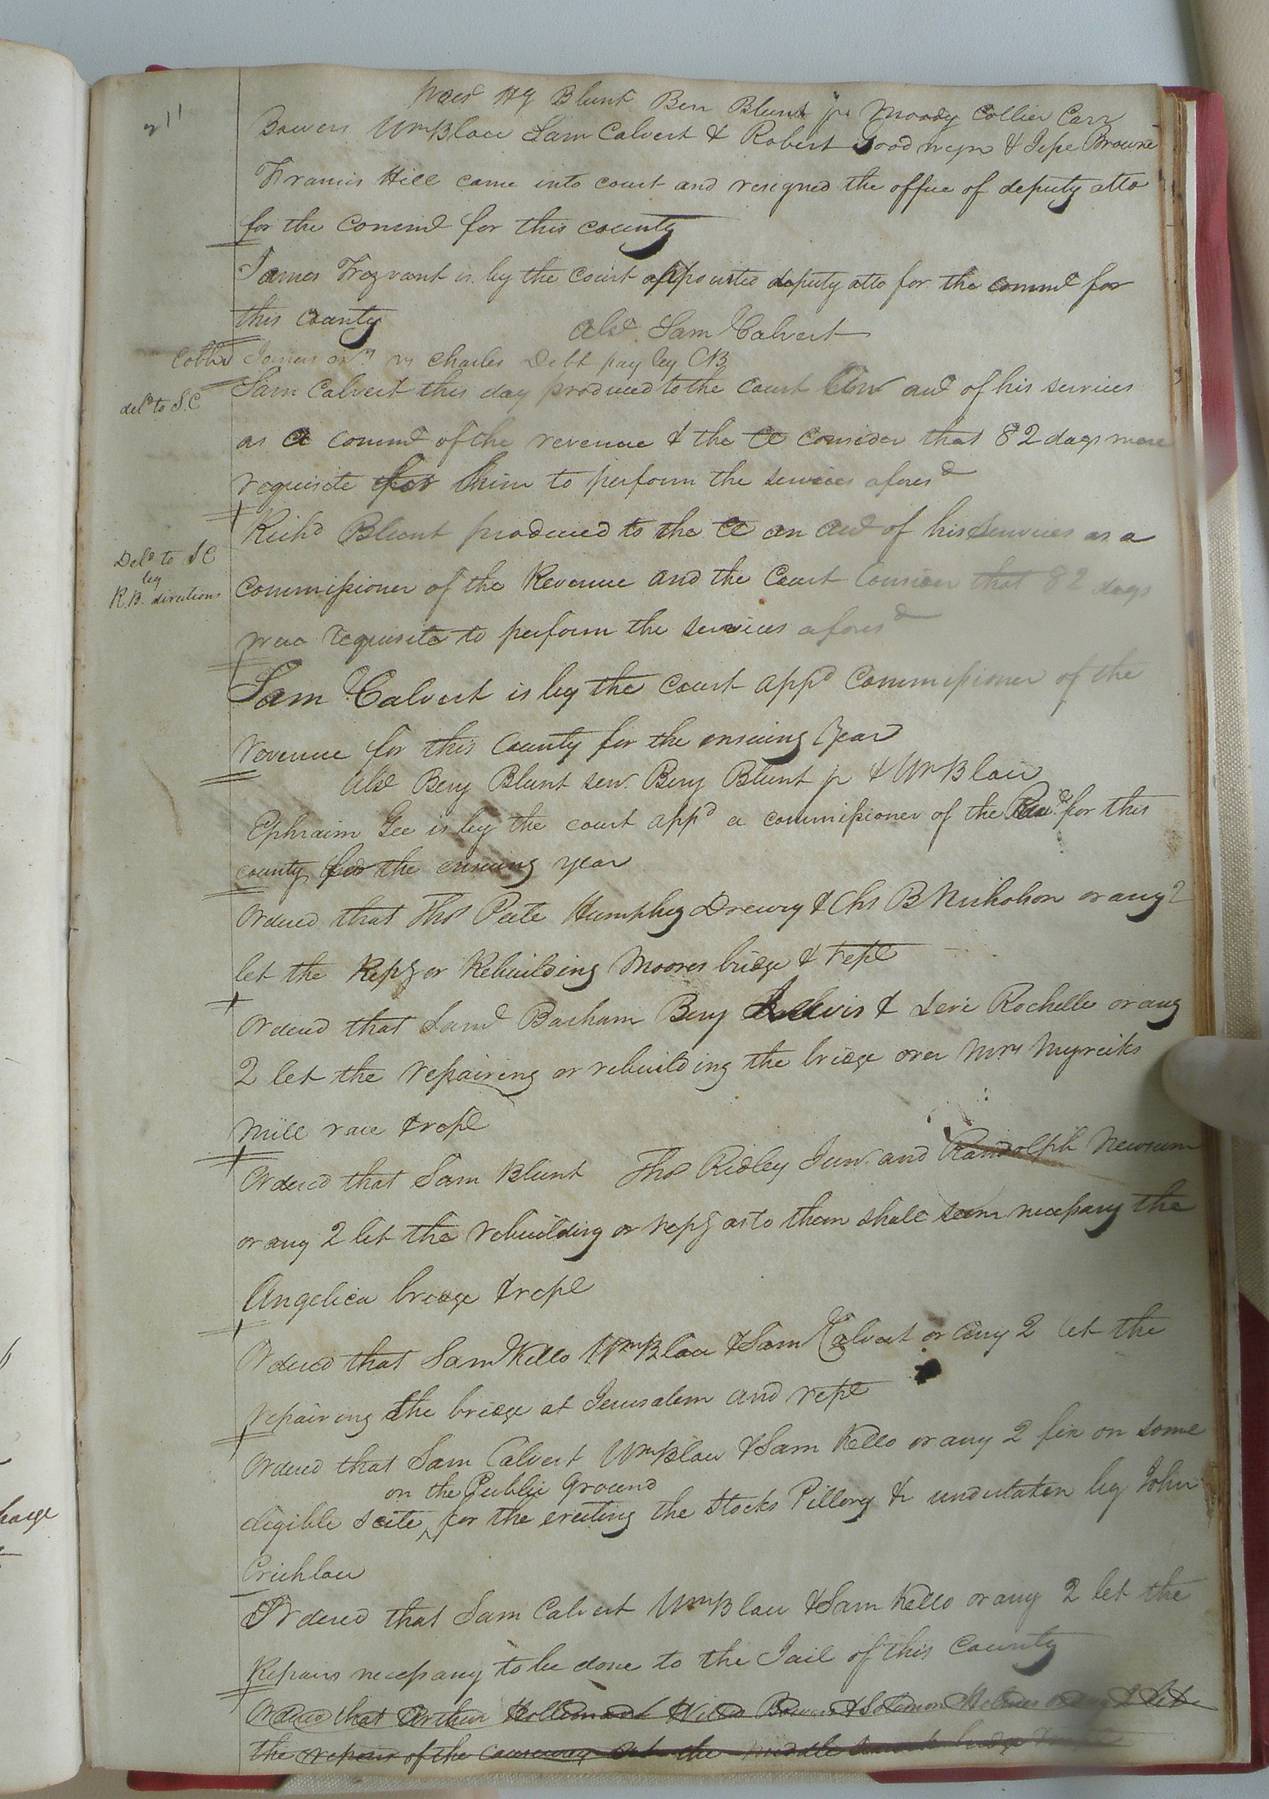 211
Pres.t Hy Blunt Ben Blunt jr Moody Collier Carr
Bowers Wm Blow Sam Calvert & Robert Goodwyn & Jesse Browne
Francis Hill came into court and resigned the office of deputy atto
for the comm.d for this county
James Trezvant is by the court appointed deputy atto for the comm.d for
this county
Abs.d Sam Calvert
James vs Charles Debt pay by CB
Sam Calvert this day produced to the court an acc.t of his services
del.d to S.C
as a comm.d of the revenue & the Ct consider that 82 days were
requisite for him to perform the services afores.d
Rich.d Blunt produced to the Ct an acc.t of his services as a
Del.d to SC
by
R.B. directions
commissioner of the Revenue and the Court Consider that 82 days
were requisite to perform the services afores.d
Sam Calvert is by the court app.d Commissioner of the
revenue for this County for the ensuing Year
Abs.d Benj Blunt sen. Benj Blunt jr & Wm Blow
Ephraim Gee is by the court app.d a commissioner of the Rev.e for this
county for the ensuing year
Ordered that Tho.s Pete Humphrey Drewry & Chs B Nicholson or any 2
let the Repg or Rebuilding Moores bridge & repl
Ordered that Sam.l Barham Benj & Levi Rochelle or any
2 let the repairing or rebuilding the bridge over Mrs Myricks
Mill race & repl
Ordered that Sam Blunt Tho.s Ridley Jun. and Randolph Newsum
or any 2 let the rebuilding or repg as to them shall seem necessary the
Angelica bridge & repl
Ordered that Sam Kello Wm Blow & Sam Calvert or any 2 let the
repairing the bridge at Jerusalem and repl
Ordered that Sam Calvert Wm Blow & Sam Kello or any 2 fix on some
on the Public Ground
eligible scite for the erecting the Stocks Pillory & undertaken by John
Crichlow
Ordered that Sam Calvert Wm Blow & Sam Kello or any 2 let the
Repairs necessary to be done to the Jail of this County
Ordered that Arthur Holleman Bowers & Solomon Holmes or any 2 let
the repairs of the Causeway at the middle bridge